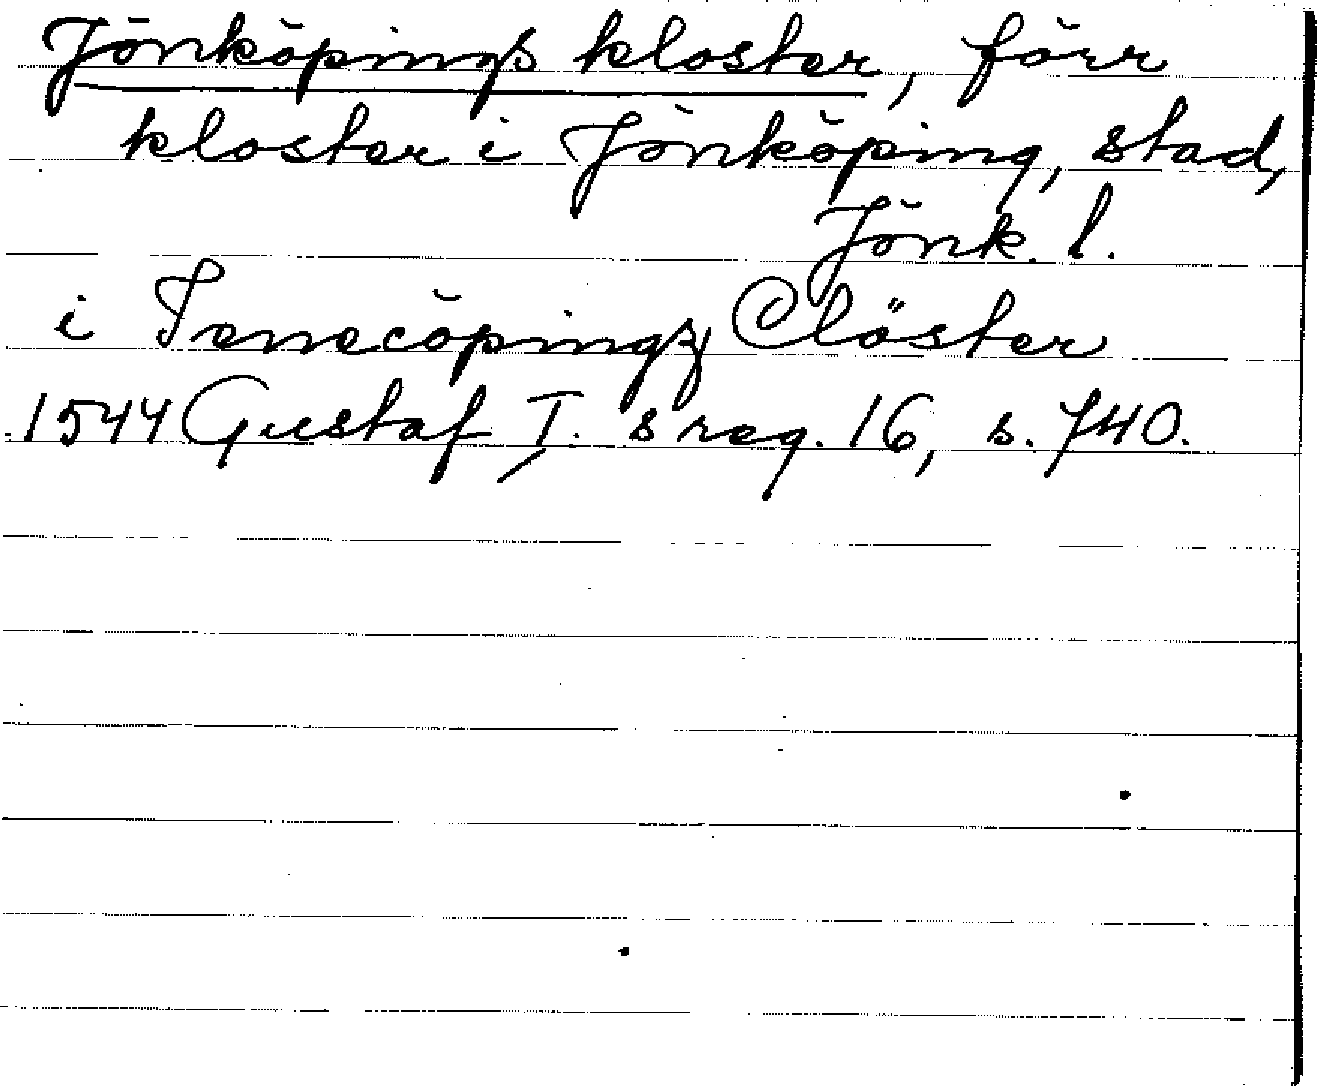 Jönköpings kloster, förr
kloster i Jönköping, stad,
Jönk. l.
i Jenecöpingz Clöster
1544 Gustaf I. s reg. 16, s. 740.